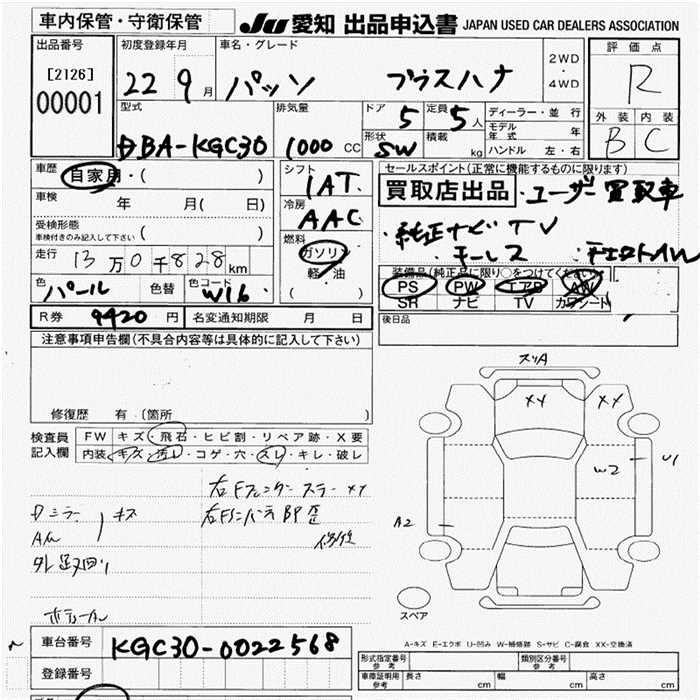 車内保管・守衛保管 JU 愛知 出品申込書 JAPAN USED CAR DEALERS ASSOCIATION
出品番号 初度登録年月 車名・グレード 2WD・4WD 評価点
[2126] 22 9月 パッソ プラスハナ R
00001
型式 排気量 ドア 定員 ディーラー・並行 外装 内装
DBA-KGC30 1000 CC 5 5人 モデル年式 年 B C
形状 SW 積載 kg ハンドル 左・右
車歴 自家用・( ) シフト 1AT セールスポイント(正常に機能するものに限ります)
車検 年 月( 日) 冷房 AAC 買取店出品・ユーザー買取車
受検形態 ・純正ナビTV
車検付きのみ記入して下さい ( ) 燃料 ガソリン ・キーレス ・チエロトAW
走行 13万0千828km 軽・油 装備品(純正品に限り○をつけてください)
色 パール 色替 色コード W16 ( ) PS PW エアB AW
SR ナビ TV カワシート
R券 9420 円 名変通知期限 月 日 後日品
注意事項申告欄(不具合内容等は具体的に記入して下さい)
修復歴 有(箇所 )
検査員記入欄 FW キズ・飛石・ヒビ割・リペア跡・X要
内装 キズ・汚レ・コゲ・穴・スレ・キレ・破レ
右Fフェンダー スラー XX
Dミラー キズ 右Fインパネ BP 歪
AW 修復
外足又回り
スリA
XX XX
W2 U1
A2
スペア
A-キズ E-エクボ U-凹み W-補修跡 S-サビ C-腐食 XX-交換済
車台番号 KGC30-0022568
登録番号
形式指定番号 参考 類別区分番号 参考
車庫証明用 参考 長さ cm 幅 cm 高さ cm